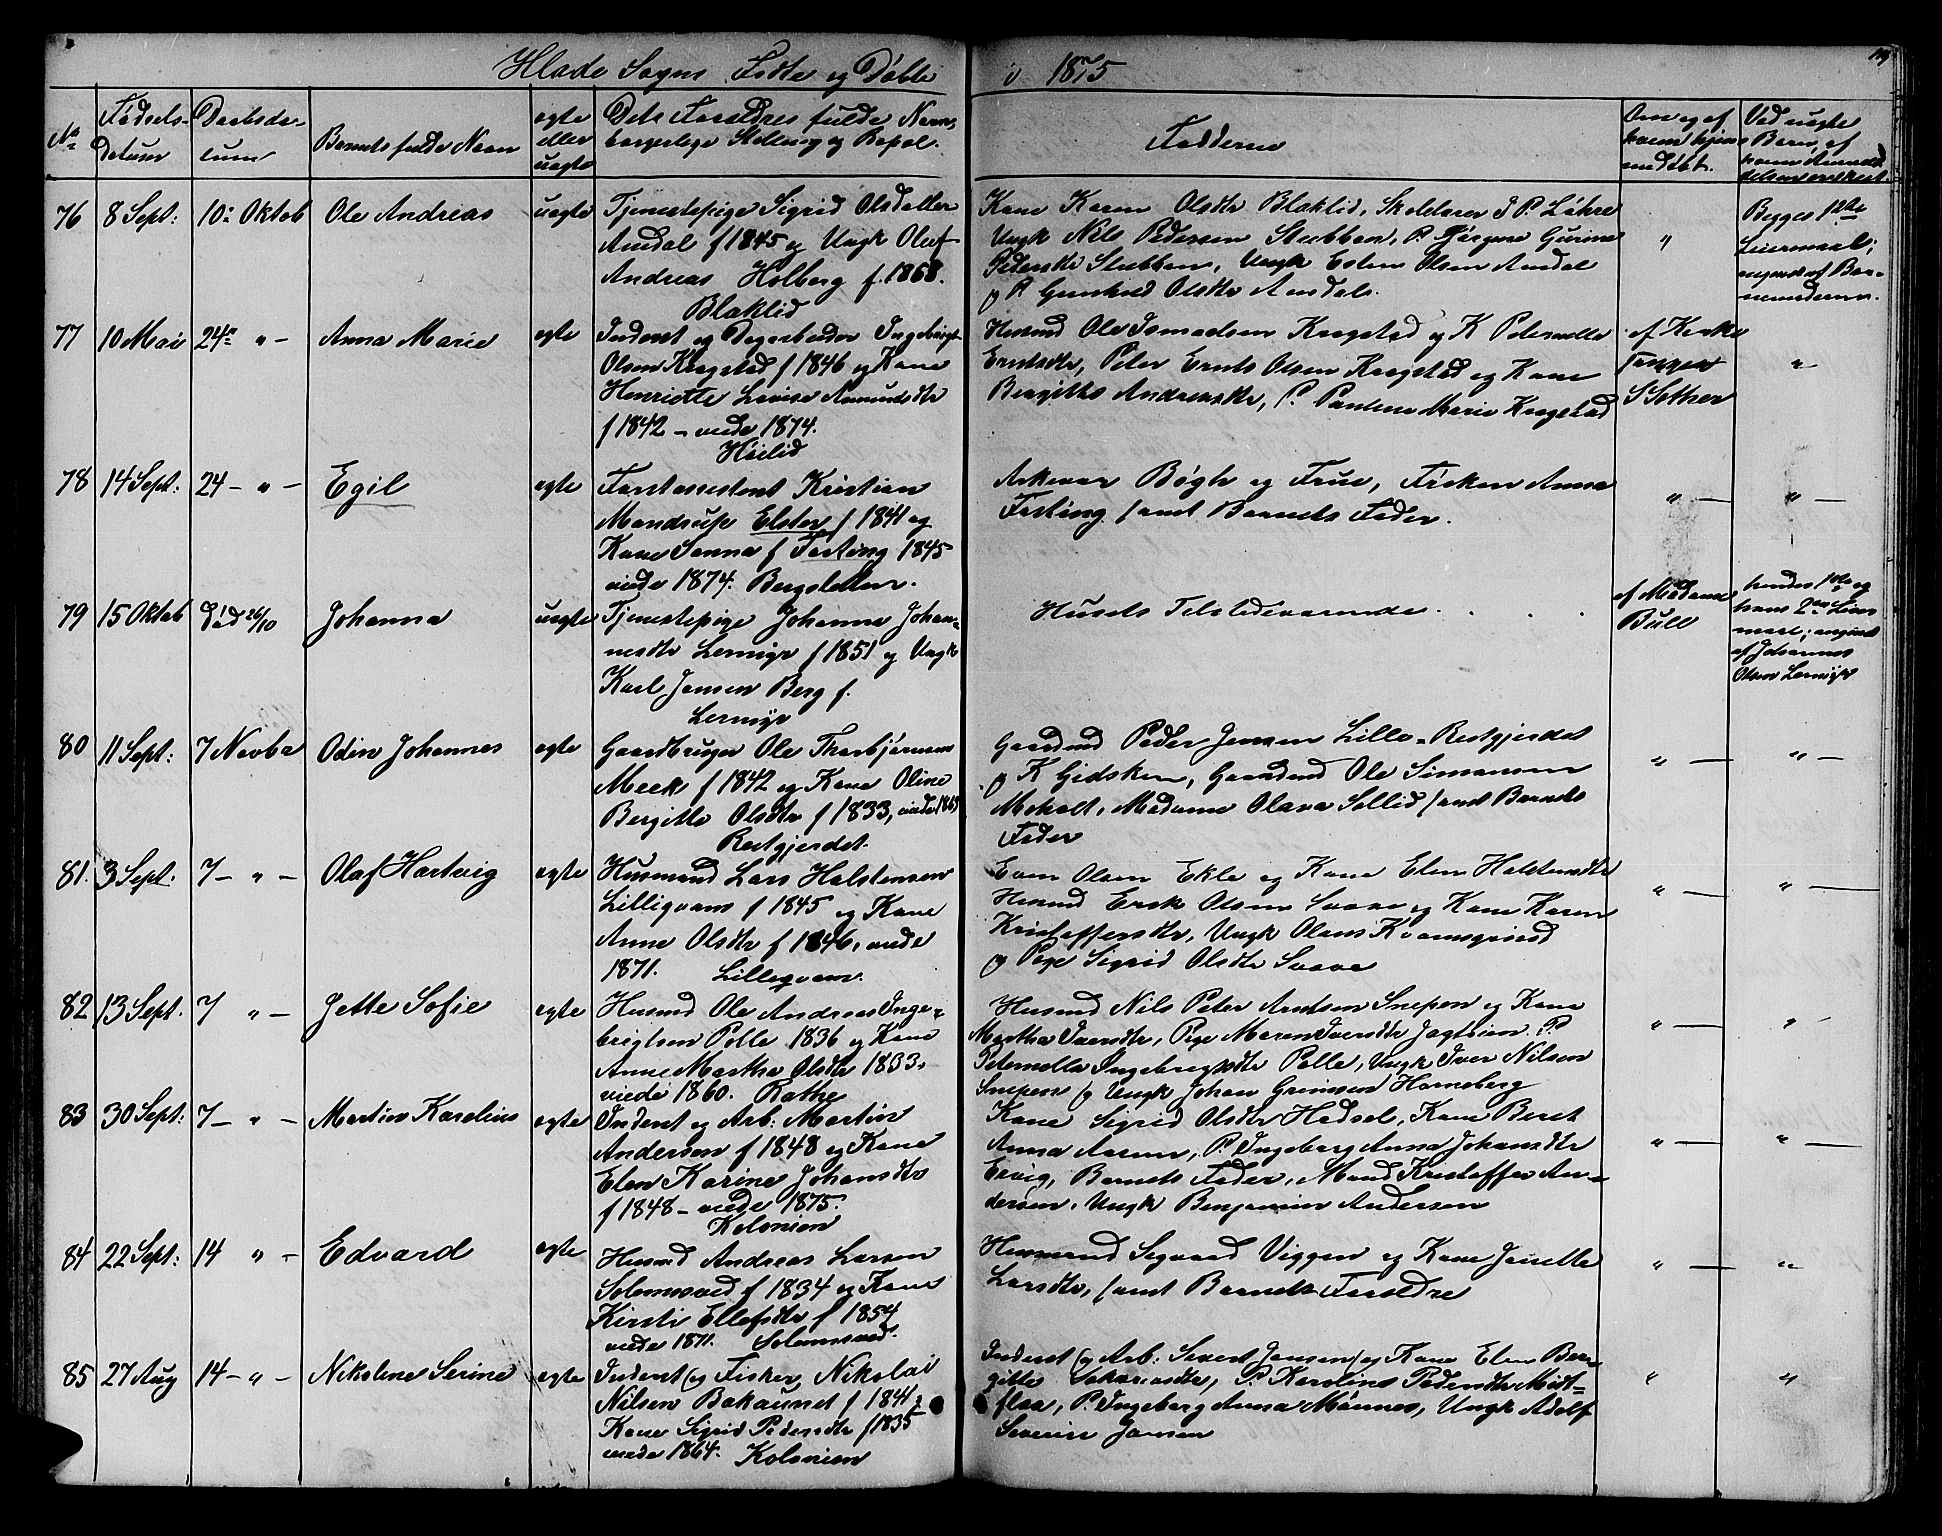 Hlade Sogns Fødte og Døbte i 1875
No
Fødsels-
datum
Daabsda-
tum
Barnets fulde Navn
ægte
eller
uægte
Dets Forældres fulde Navn,
borgerlige Stilling og Bopæl.
Faddere
Om og af
hvem hjem-
medøbt.
Ved uægte
Børn, af
hvem Anmeld-
delsen er skeet.
76 8 Sept: 10: Oktob Ole Andreas uægte
Tjenestepige Sigrid Olsdatter
Amdal f 1845 og Ungk Oluf
Andreas Holberg f. 1868.
Blaklid
Kone Karen Olsdtr Blaklid, Skolelærer J P. Løhre
Ungk Nils Pedersen Stubban, P. Jørgine Gurine
Pedersdtr Stubban, Ungk Esten Olsen Amdal
og P Gunhild Olsdtr Amdal.
"
Begges 1ste
Leiermaal;
af Bar-
nemoderen.
77 10 Mai 24de " - Anna Marie ægte
Inderst og Dagarbeider Ingebrigt
Olsen Kragstad f 1846 og Kone
Henriette Lovise Amundsdtr
f 1842 - viede 1874.
Høilid
Husmd Ole Kragstad og K Peternelle
Erntsdtr, Peter Ernts Olsen Kragstad og Kone
Bergitha Andreasdtr, P. Pauline Marie Kragstad
af Kirke
Sanger
S Sother
"
78 14 Sept: 24 - " - Egil ægte
Forstassistent Kristian
Mandrup Elster f 1841 og
Kone Sanna f Fasting 1845
viede 1874. Bergsletten.
Arkivar Bøgh og Frue, Frøken Anna
Fasting samt Barnets Fader.
" - " -
79 15 Oktob Død 26/10 Johanna uægte
Tjenestepige Johanna Johan-
nesdtr Lermyr f 1851 og Ungk
Karl Jensen Berg f.
Lermyr
Husets Tilstedeværende.
af Madame
Bull
hendes 1ste og
hans 2den Leier-
maal; angivet
af Johannes
Olsen Lermyr
80 11 Sept: 7 Novbr Odin Johannes ægte
Gaardbruger Ole Thorbjørnsen
Meek f 1842 og Kone Oline
Bergitte Olsdtr f 1833, viede 1863
Restgjerdet.
Gaardmd Peder Jensen Lille-Restgjerdet
og K Gidsken, Gaardmd Ole Simonsen
Moholt, Madame Olava Sollid samt Barnets
Fader
" - " -
81. 3 Sept. 7 - " - Olaf Hartvig ægte
Husmand Lars Halstensen
Lilleqvam f 1845 og Kone
Anne Olsdtr f 1846, viede
1871. Lilleqvam.
Even Olsen Ekle og Kone Elen Halstensdtr
Husmd Erik Olsen Svave og Kone Karen
Kristoffersdtr, Ungk Olaus Kvamsgrind
og Pige Sigrid Olsdtr Svave
" - " -
82 13 Sept. 7 " - Jette Sofie ægte
Husmd Ole Andreas Inge-
brigtsen Polle 1836 og Kone
Anne Martha Olsdtr 1833.
viede 1860. Rathe
Husmd Nils Peter Arntsen Snepen og Kone
Martha Iversdtr, Pige Maren Iversdtr Jagtøien. P.
Petternella Ingebrigtsdtr Polle, Ungk Iver Nilsen
Snepen og Ungk Johan Grimsen Harneberg
" - "
83 30 Sept: 7 - " - Martin Karelius ægte
Inderst og Arb. Martin
Andersen f 1848 og Kone
Elen Karine Johansdtr
f 1848 - viede 1875.
Kolonien
Kone Sigrid Olsdtr Hadsel, Kone Beret
Anna Aarnn, P. Ingeborg Anna Johansdtr
Ervig, Barnets Fader, Mand Kristoffer An-
dersen, Ungk Benjamin Andersen
" - " -
84 22 Sept: 14 " - Edvard ægte
Husmd Andreas Larsen
Solemsvad f 1834 og Kone
Kirsti Ellefsdtr f 1854
viede 1871. Solemsvad.
Husmand Sivard Viggen og Kone Jonette
Larsdtr, samt Barnets Forældre
" - "
85 27 Aug 14 - " - Nikoline Serine ægte
Inderst og Fisker Nikolai
Nilsen Bakaunet f 1841 og
Kone Sigrid Pedersdtr f 1835
viede 1864. Kolonien
Inderst og Arb: Sivert Jansen og Kone Elen Ber-
gitte Sakariasdtr, P. Karoline Pedersdtr Midt-
flaa, P. Ingeborg Anna Mønnes, Ungk Adolf
Severin Jansen
" "